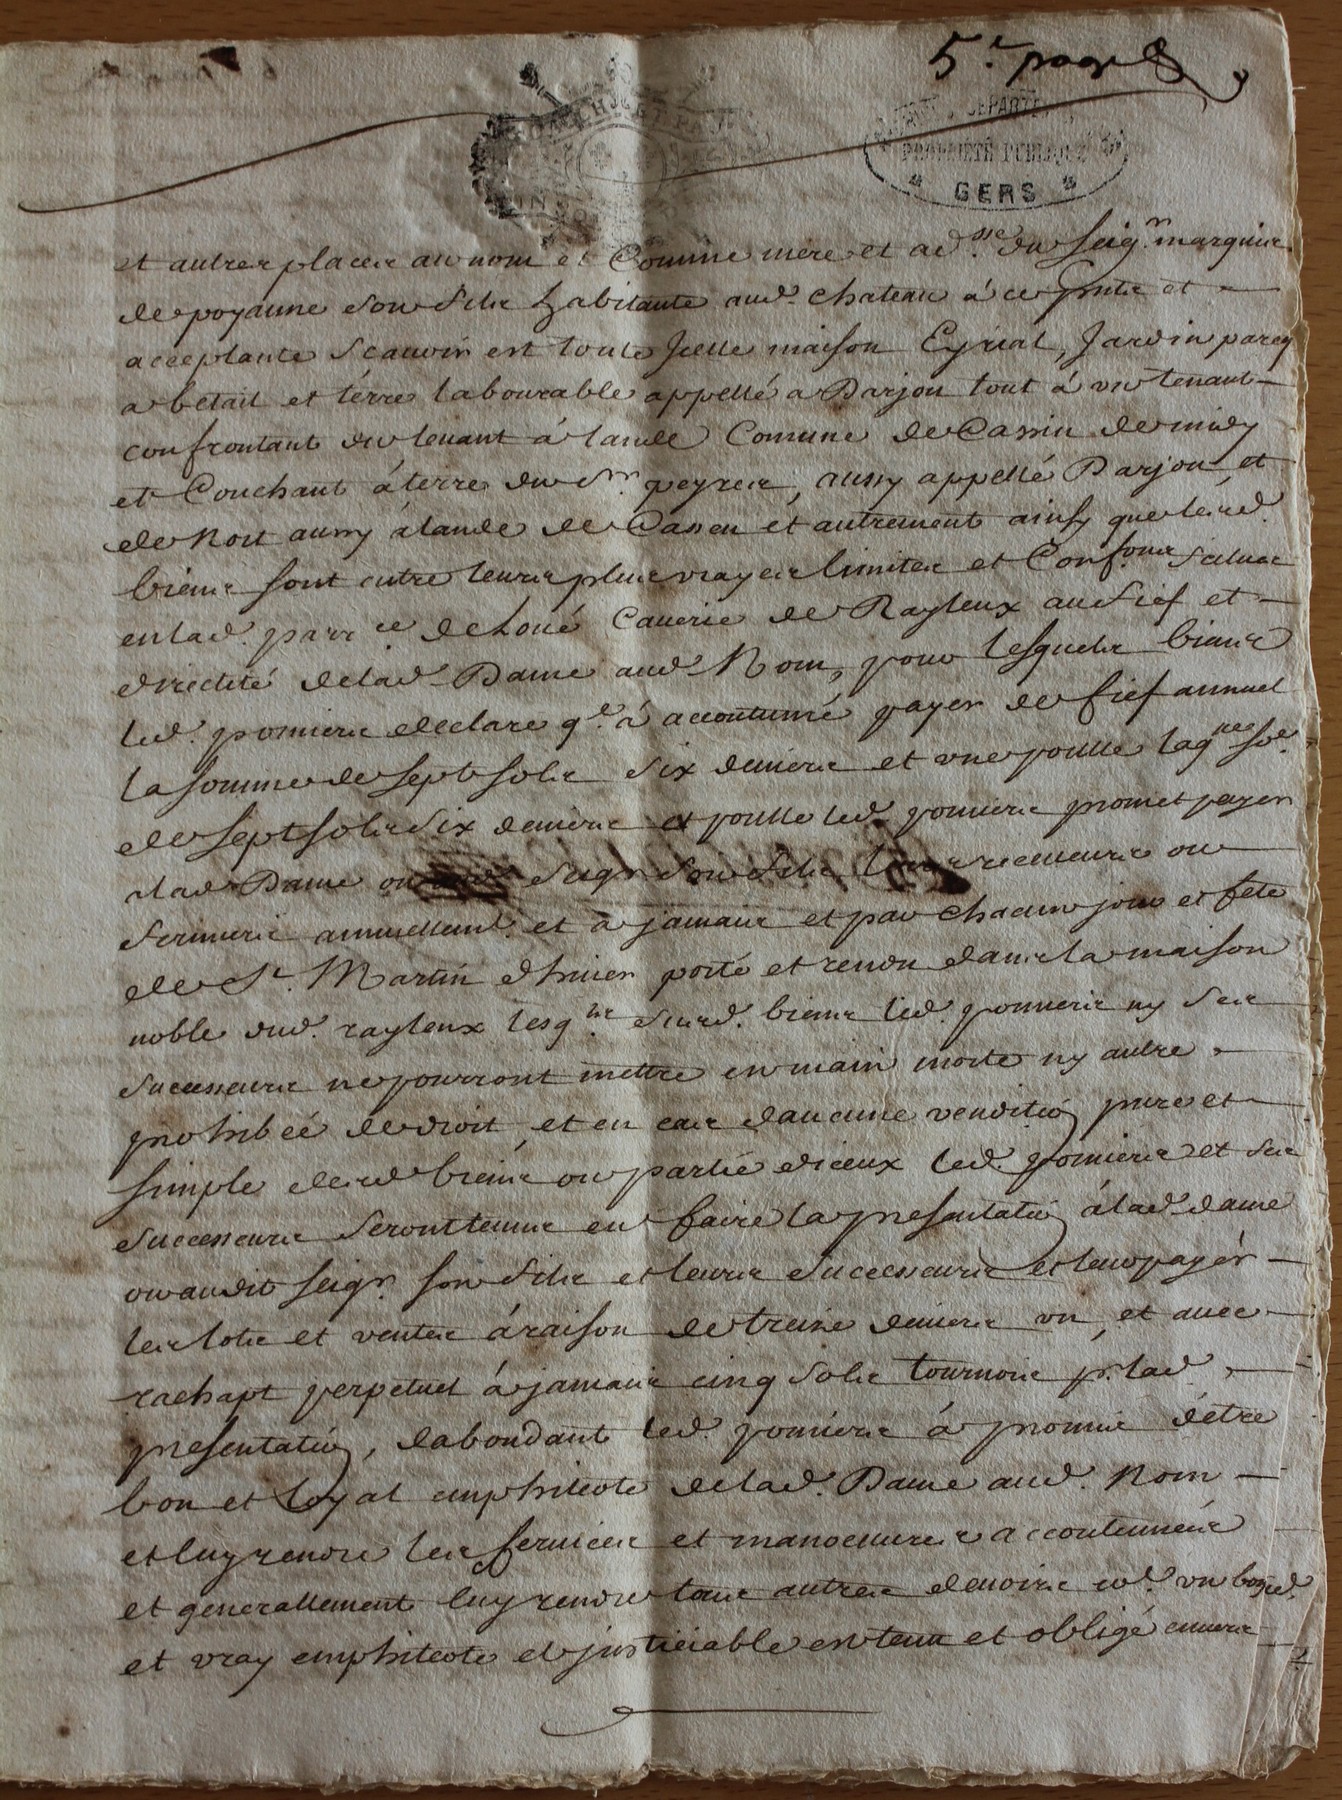 5.e page
PROPRIÉTÉ PUBLIQUE
GERS
et autres places au nom et Comme mere et ad.sse du seig.r marquis
de poyanne son fils habitante aud. chateau à ce pnte et
acceptante scauoir est toute Jcelle maison Eyrial, Jardin parcq
a betail et térre labourable appellé a Darjou tout à vn tenant
confrontant du leuant à lande Comune de Cassen de midy
et Couchant à terres du sr. peyres, aussy appellé Darjou et
de Nort aussy à lande de Cassen et autrement ainsy que lesd.
biens sont entre leurs plus vrayes limites et Conf.ons scitues
en lad. parr.ce de Loüé Cauerie de Rayleux au fief et
directité de lad. Dame aud. Nom, pour lesquels biens
led. pomiers declare q.l à accoutumé payer de fief annuel
la somme de sept sols six deniers et vne poulle laq.lle so.e
de sept sols six deniers et poulle led. pomiers promet payer
a lad. Dame ou seigr. son fils leurs receueurs ou
fermiers annuellem.t et a jamais et par chacun jour et fete
de St. Martin dhiuer porté et rendu dans la maison
noble dud. rayleux lesq.ls susd. biens led. pomiers ny ses
successeurs ne pourront mettre en main morte ny autre
prohibée de droit, et en cas daucune venditiõ pure et
simple desd. biens ou partie diceux led. pomiers et ses
successeurs seront tenus en faire la presentatiõ à lad. dame
ou audit seigr. son fils et leurs successeurs et leur payér
les lots et ventes à raison de treize deniers vn, et auec
rachapt perpetuel à jamais cinq sols tournois pr. lad.
presentatiõ, dabondant led. pomiérs à promis détre
bon et loyal emphiteote de lad. Dame aud. Nom
et luy rendre les seruices et manoeuures accoutumés
et generallement luy rendre tous autres deuoirs co.e vn bon
et vray emphiteote et justiciable est tenu et obligé enuers